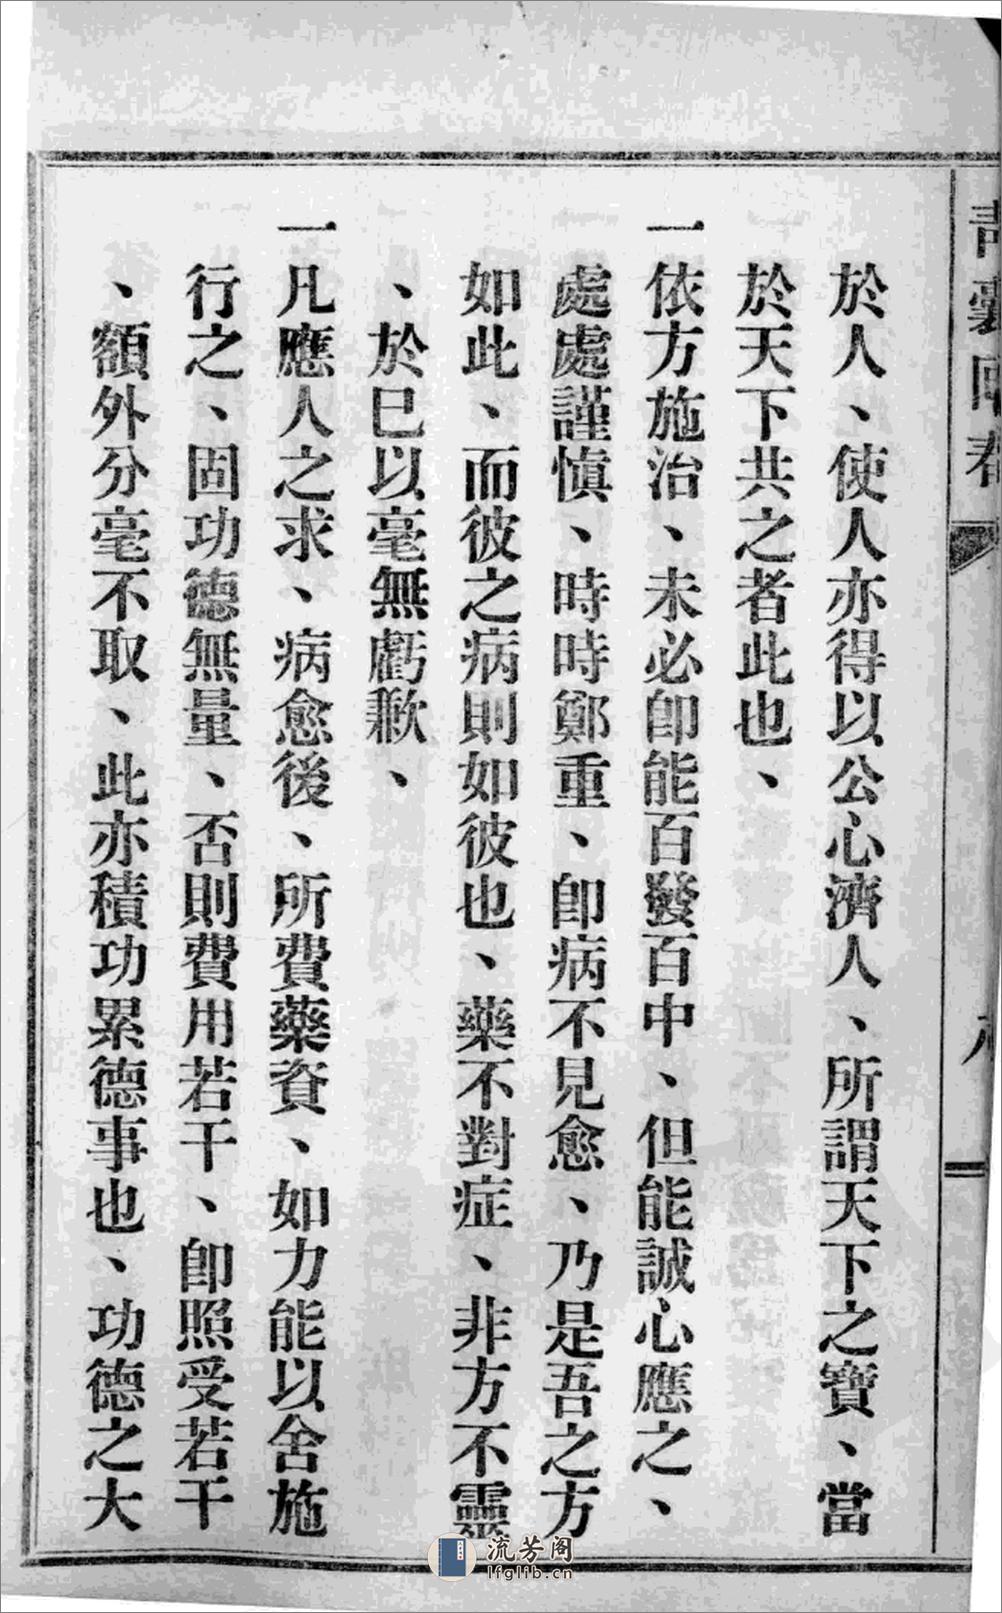 於人、使人亦得以公心濟人、所謂天下之寶、當
於天下共之者此也、
一依方施治、未必卽能百發百中、但能誠心應之、
處處謹愼、時時鄭重、卽病不見愈、乃是吾之方
如此、而彼之病則如彼也、藥不對症、非方不靈
、於已以毫無虧歉、
一凡應人之求、病愈後、所費藥資、如力能以舍施
行之、固功德無量、否則費用若干、卽照受若干
、額外分毫不取、此亦積功累德事也、功德之大
流芳阁
lfglib.cn